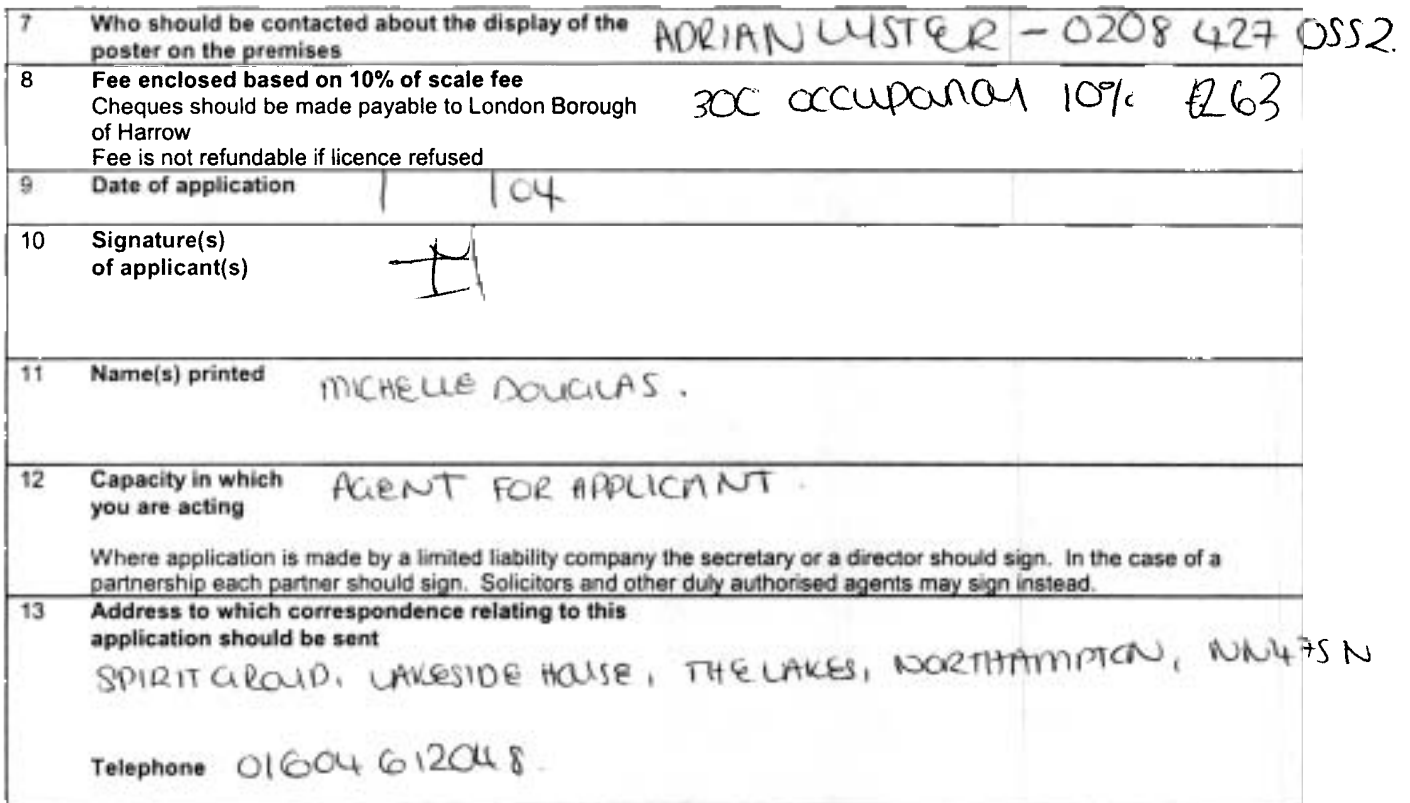 7 Who should be contacted about the display of the ADRIAN LYSTER - 0208 427 0552.
poster on the premises
8 Fee enclosed based on 10% of scale fee
Cheques should be made payable to London Borough 300 occupancy 10% £263
of Harrow
Fee is not refundable if licence refused
9 Date of application / /04
10 Signature(s)
of applicant(s)
11 Name(s) printed MICHELLE DOUGLAS.
12 Capacity in which AGENT FOR APPLICANT.
you are acting
Where application is made by a limited liability company the secretary or a director should sign. In the case of a
partnership each partner should sign. Solicitors and other duly authorised agents may sign instead.
13 Address to which correspondence relating to this
application should be sent
SPIRIT GROUP, LAKESIDE HOUSE, THE LAKES, NORTHAMPTON, NN4 7SN
Telephone 01604 612048.